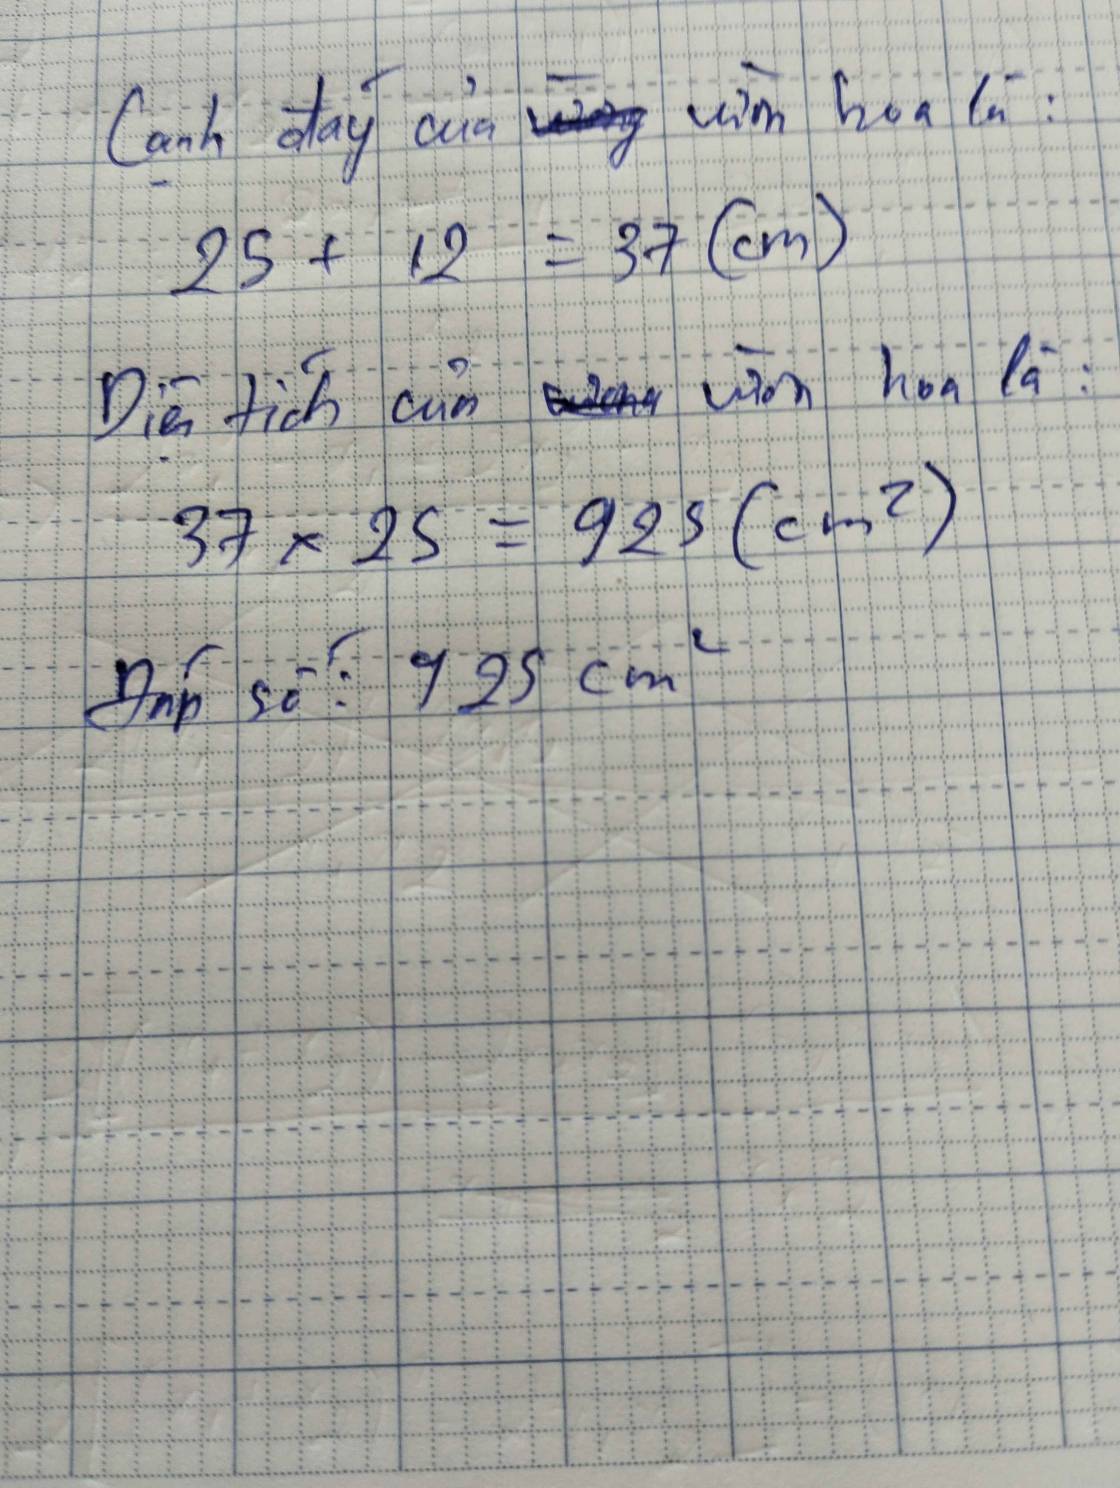 Cạnh đáy của vườn hoa là:
25 + 12 = 37 (cm)
Diện tích của vườn hoa là:
37 × 25 = 925 (cm²)
Đáp số: 925 cm²